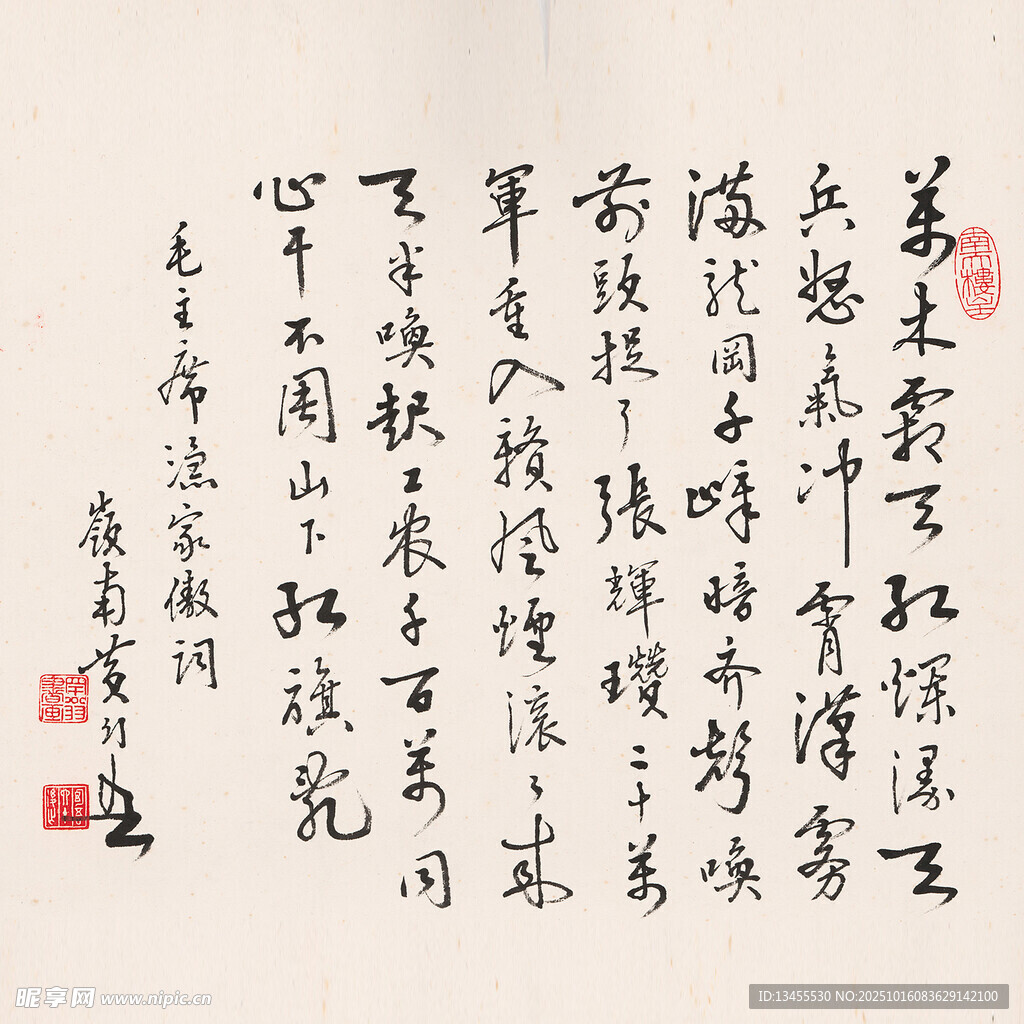 萬木霜天紅爛漫天
兵怒氣冲霄漢霧
滿龍岡千嶂暗齐聲喚
前頭捉了張輝瓚二十萬
軍重入贛風煙滾々来
天半喚起工农千百萬同
心干不周山下紅旗亂
毛主席漁家傲詞
嶺南黄
昵享网 www.nipic.cn
ID:13455530 NO:20251016083629142100